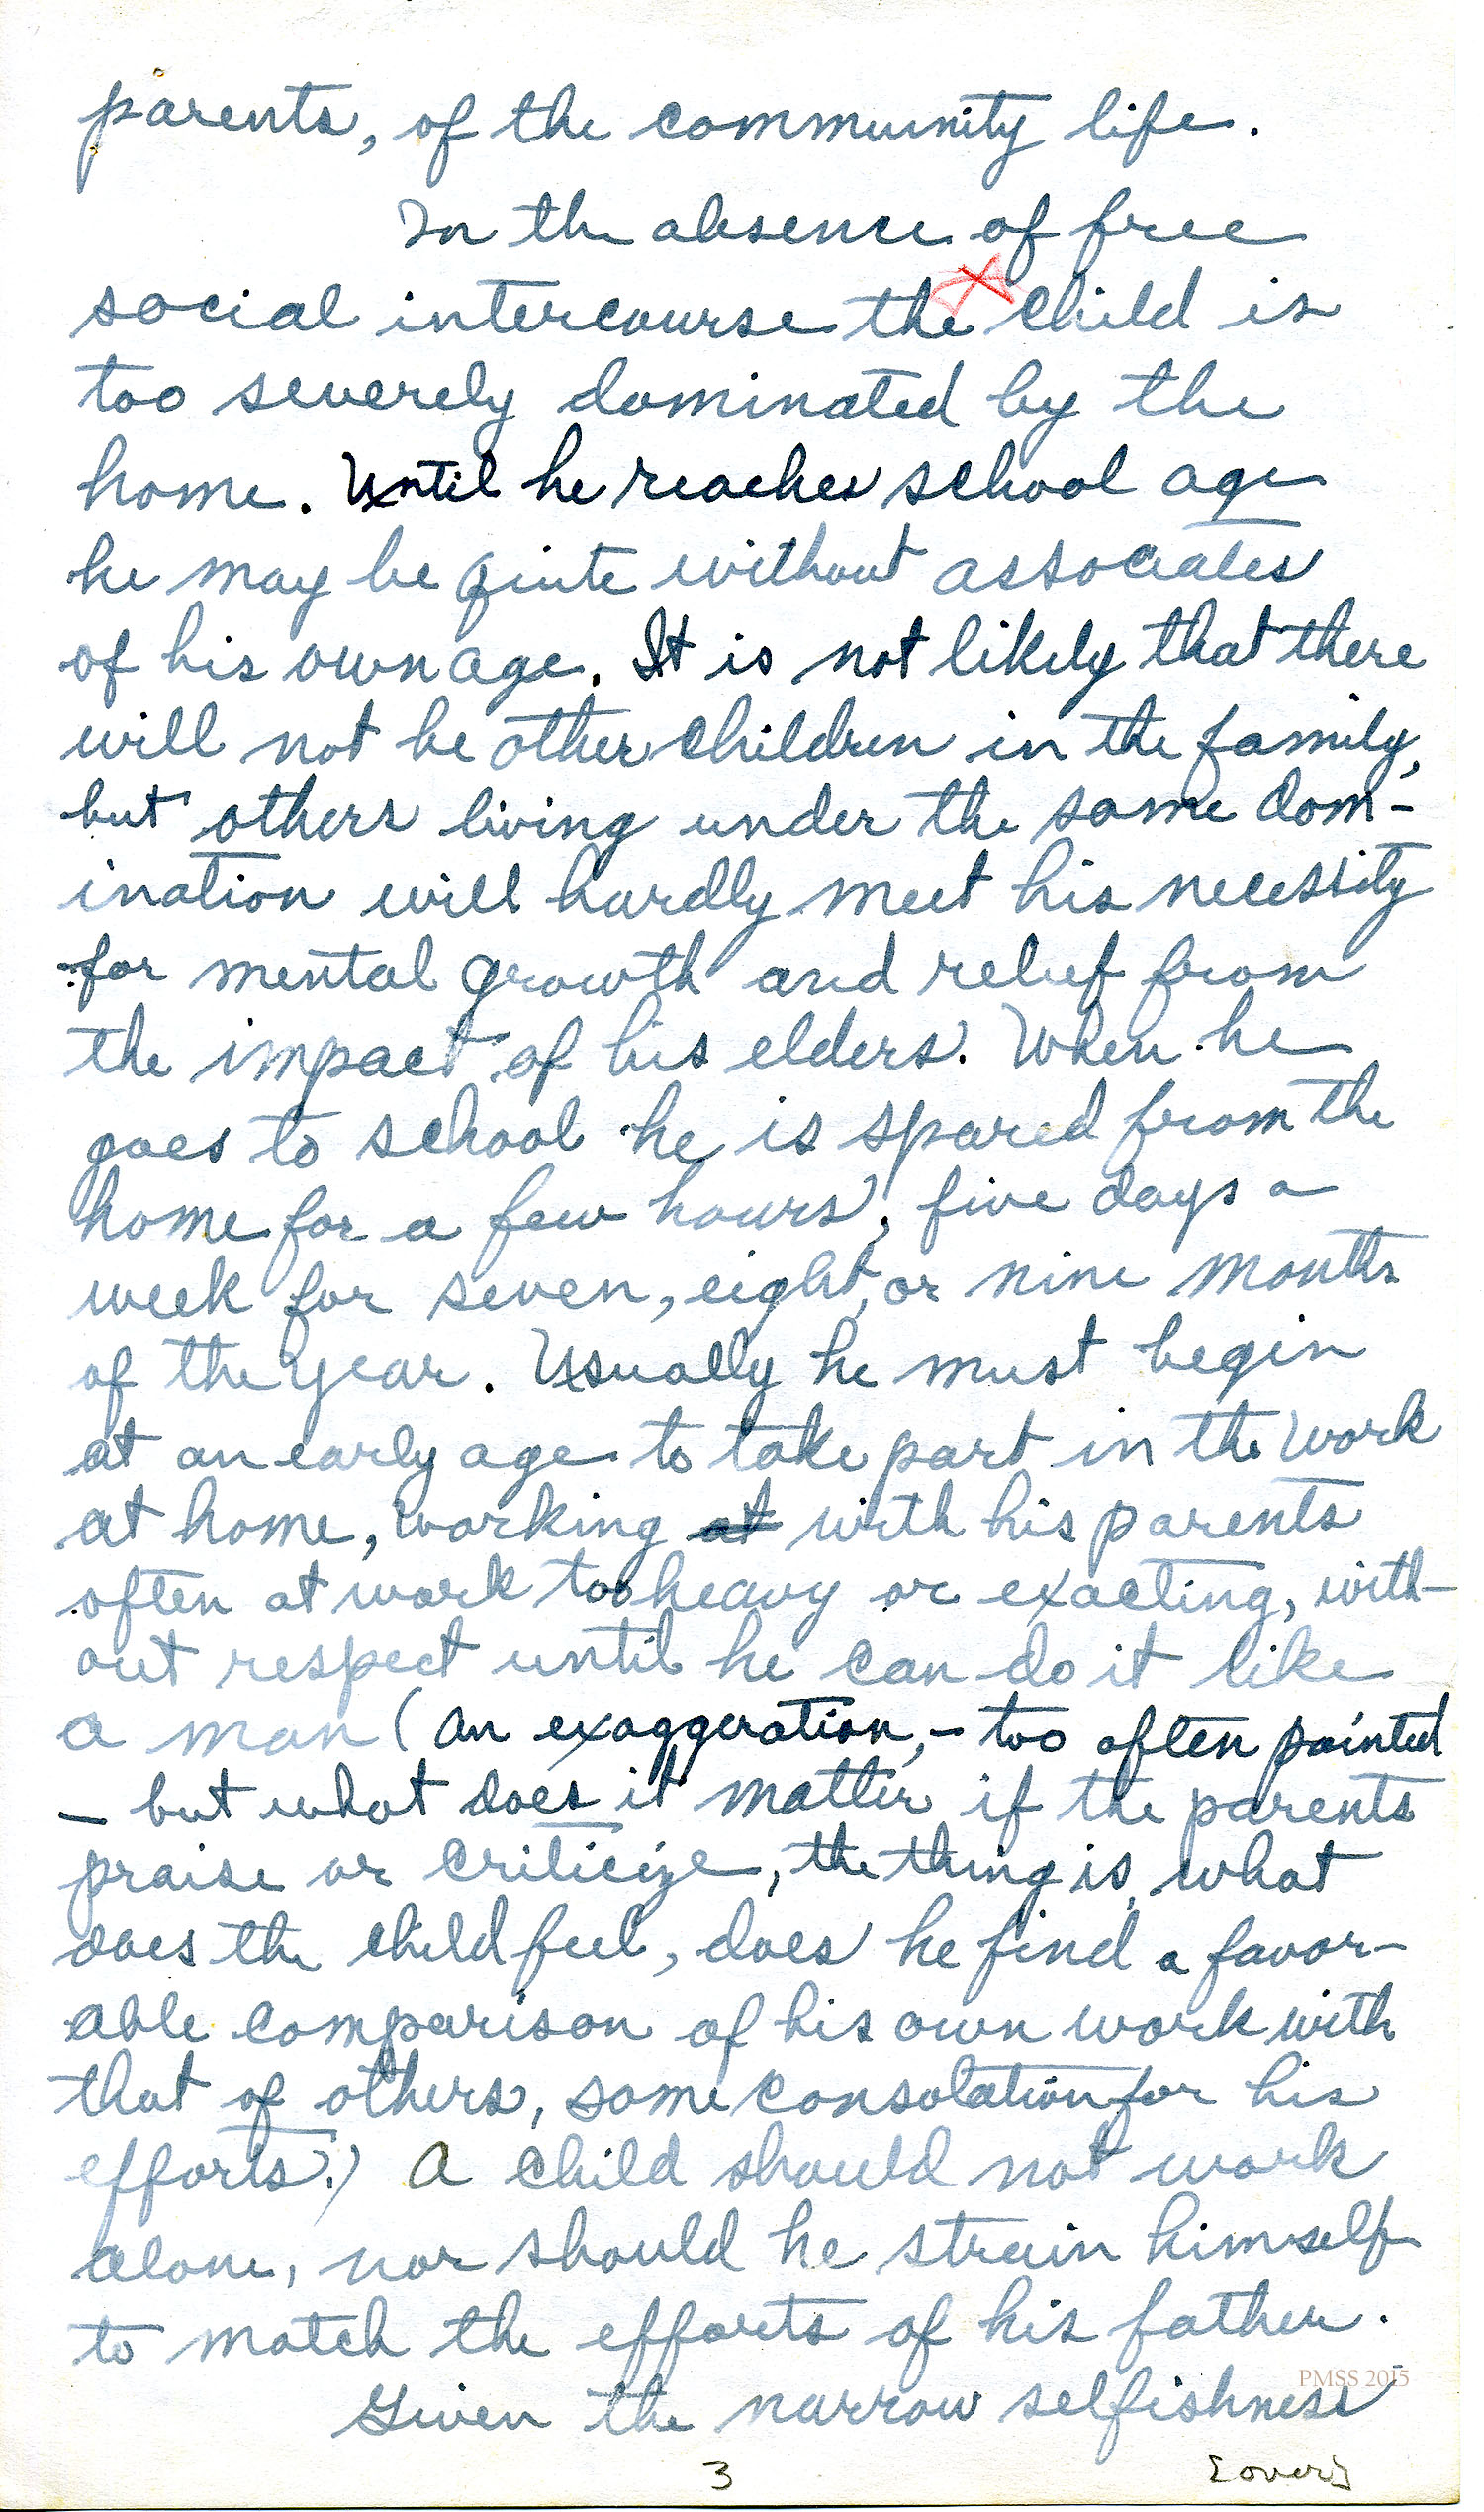 parents, of the community life.
In the absence of free
social intercourse the child is
too severely dominated by the
home. Until he reaches school age
he may be quite without associates
of his own age. It is not likely that there
will not be other children in the family,
but others living under the same dom-
ination will hardly meet his necessity
for mental growth and relief from
the impact of his elders. When he
goes to school he is spared from the
home for a few hours, five days a
week for seven, eight, or nine months
of the year. Usually he must begin
at an early age to take part in the work
at home, working at with his parents
often at work too heavy or exacting, with-
out respect until he can do it like
a man (an exaggeration, – too often painted
– but what does it matter if the parents
praise or criticize, the thing is, what
does the child feel, does he find a favor-
able comparison of his own work with
that of others, some consolation for his
efforts.) A child should not work
alone, nor should he strain himself
to match the efforts of his father.
PMSS 2015
Given the narrow selfishness
3 [over]